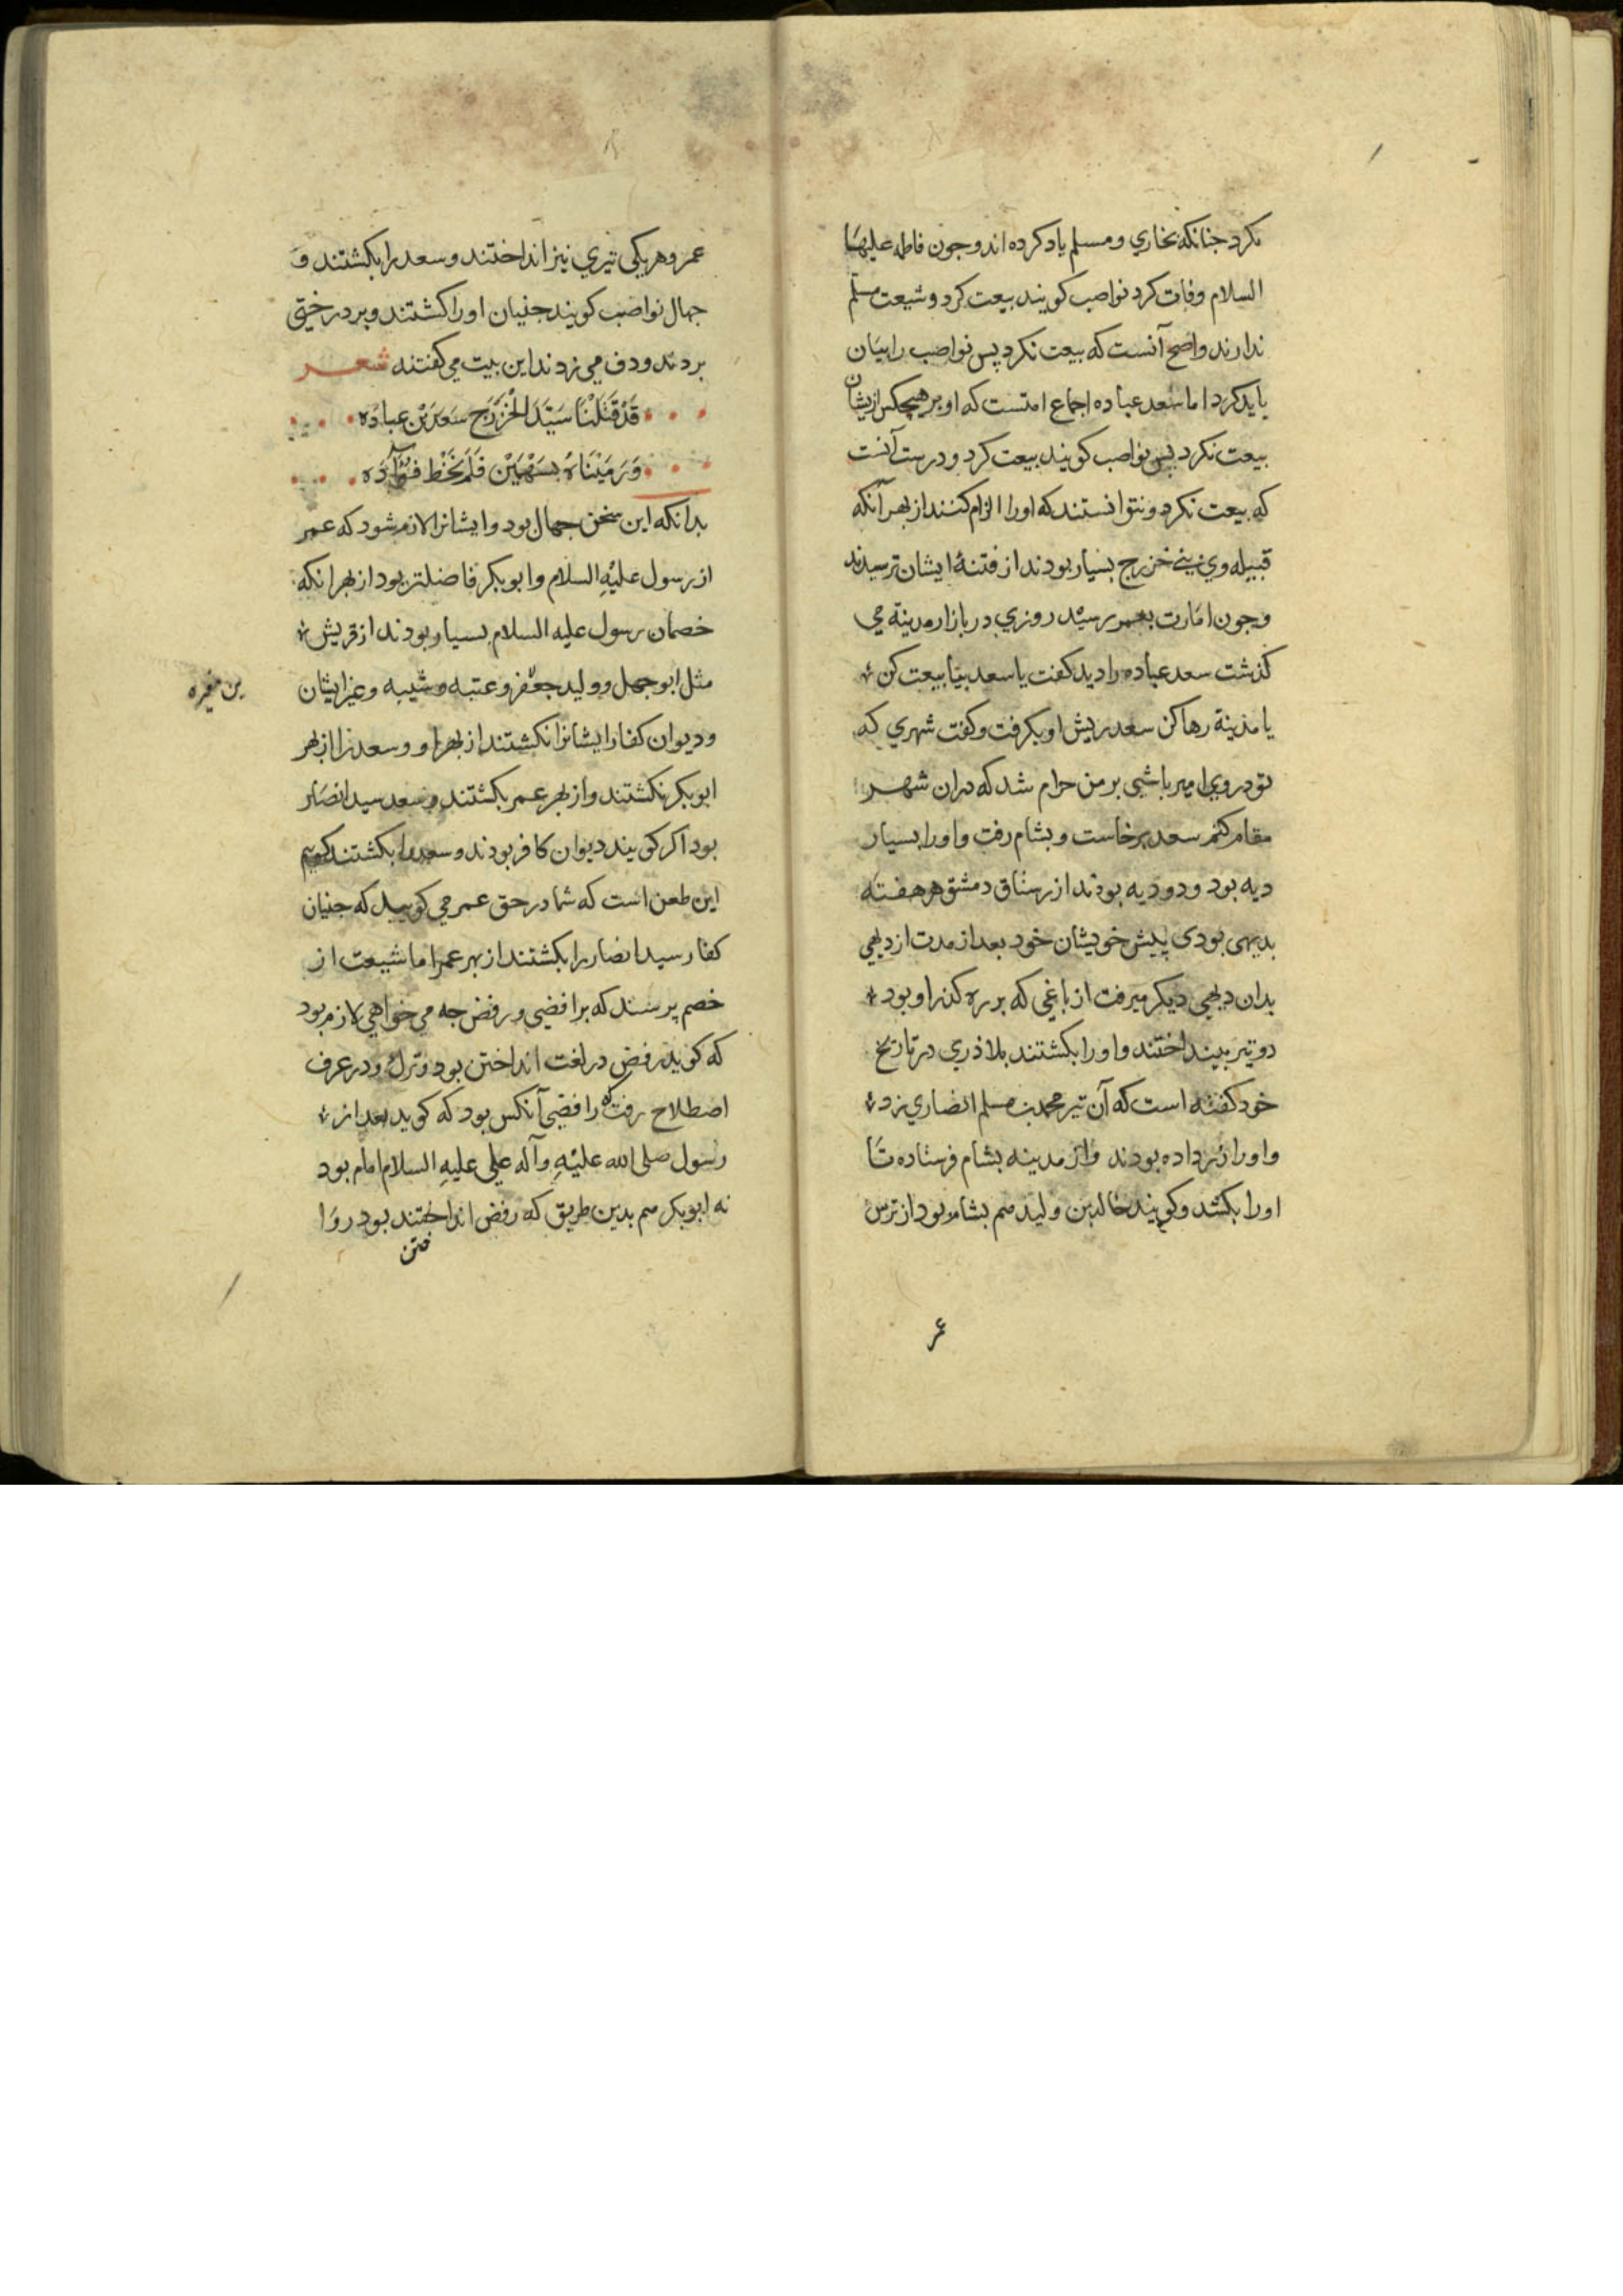 نکرد جنانکه بخاري ومسلم یاد کرده اند وجون فاطمه علیها
السلام وفات کرد نواصب کویند بیعت کرد وشیعت مسلّم
ندارند واصح آنست که بیعت نکرد پس نواصب را بیان
باید کرد اما سعد عباده اجماع امتست که او بر هیچکس ازیشان
بیعت نکرد پس نواصب کویند بیعت کرد ودرست آنست
که بیعت نکرد ونتوانستند که اورا الزام کنند از بهر آنکه
قبیله وي خزرج بسیار بودند از فتنهٔ ایشان ترسیدند
وجون امارت بعمر رسید روزي در بازار مدینة مي
کذشت سعد عباده را دید کفت یا سعد بیا بیعت کن
یا مدینة رها کن سعد ریش او بکرفت وکفت شهري که
تو در وي امیر باشی بر من حرام شد که دران شهر
مقام کنم سعد برخاست وبشام رفت واورا بسیار
دیه بود ودو دیه بودند از رستاق دمشق هر هفته
بدیهی بودی پیش خویشان خود بعد از مدت از دیهي
بدان دیهي دیکر میرفت از باغي که بر ره کذر او بود
دو تیر بینداختند واورا بکشتند بلاذري در تاریخ
خود کفته است که آن تیر محمد بن مسلم انصاري زد
واورا زر داده بودند واز مدینه بشام فرستاده تا
اورا بکشد وکویند خالد بن ولید هم بشام بود از ترس
عمر
عمر وهر یکی تیري نیز انداختند وسعد را بکشتند و
جهال نواصب کویند جنیان اورا کشتند وبر درختی
بردند ودف می زدند این بیت می کفتند شعر
قَدْ قَتَلْنَا سَیِّدَ الْخَزْرَجِ سَعَدَ بْنَ عباده
وَرَمَیْنَاهُ بِسَهْمَیْنِ فَلَمْ یَخْطِ فُؤَآدَه
بدانکه این سخن جهال بود وایشانرا لازم شود که عمر
از رسول علیْهِ السلام وابوبکر فاضلتر بود از بهر انکه
خصمان رسول علیه السلام بسیار بودند از قریش
مثل ابوجهل وولید جعفر وعتبه وشیبه وغیر ایشان
بن مغیره
ودیوان کفار ایشانرا نکشتند از بهر او وسعد را از بهر
ابوبکر نکشتند واز بهر عمر بکشتند وسعد سید انصار
بود اکر کویند دیوان کافر بودند وسعد را بکشتند کویم
این طعن است که شما در حق عمر مي کویید که جنیان
کفار سید انصار را بکشتند از بهر عمر اما شیعت از
خصم پرسند که برافضی ورفض جه می خواهي لازم بود
که کوید رفض در لغت انداختن بود وترك ودر عرف
اصطلاح رافضی آنکس بود که کوید بعد از
رسول صلی الله علیْهِ وآله علی علیهِ السلام امام بود
نه ابوبکر هم بدین طریق که رفض انداختند بود روا
ختن